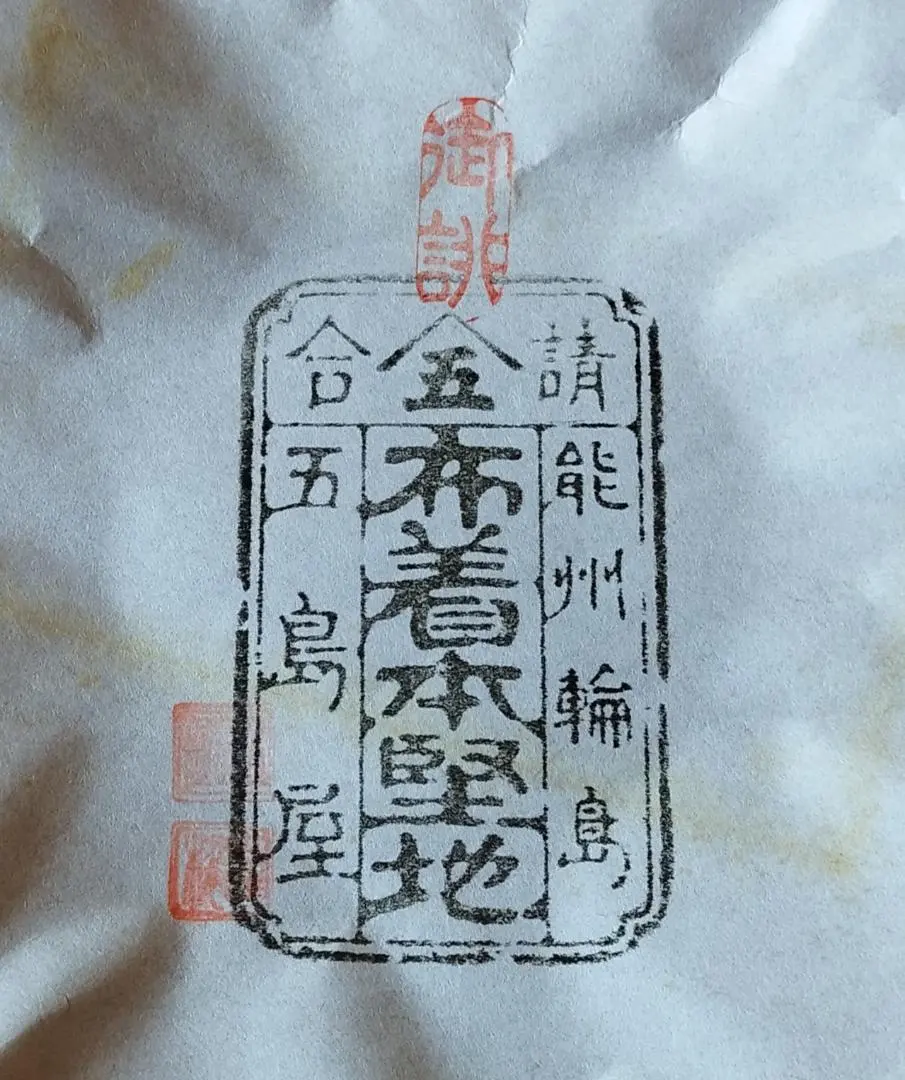 御誂
請合
五
能州輪島
布着本堅地
五島屋